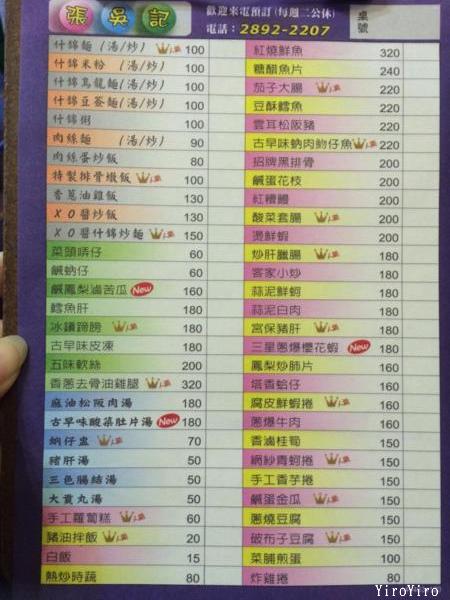 張吳記
歡迎來電預訂(每週二公休)
電話：2892-2207
桌號
什錦麵 (湯/炒) 100
什錦米粉 (湯/炒) 100
什錦烏龍麵(湯/炒) 100
什錦豆簽麵(湯/炒) 100
什錦粥 100
肉絲麵 (湯/炒) 90
肉絲蛋炒飯 80
特製排骨燉飯 100
香蔥油雞飯 130
XO醬炒飯 130
XO醬什錦炒麵 150
菜頭 60
鹹蚋仔 60
鹹鳳梨滷苦瓜 New 160
鱈魚肝 180
冰鎮蹄膀 180
古早味皮凍 180
五味軟絲 200
香蔥去骨油雞腿 320
麻油松阪肉湯 180
古早味酸菜肚片湯 New 180
蚋仔盅 70
豬肝湯 50
三色腸結湯 50
大貢丸湯 50
手工蘿蔔糕 60
豬油拌飯 20
白飯 15
熱炒時蔬 80
紅燒鮮魚 320
糖醋魚片 240
茄子大腸 220
豆酥鱈魚 220
雲耳松阪豬 220
古早味蚋肉魩仔魚 220
招牌黑排骨 200
鹹蛋花枝 200
紅糟鰻 200
酸菜套腸 200
燙鮮蝦 200
炒肝臘腸 180
客家小炒 180
蒜泥鮮蚵 180
蒜泥白肉 180
宮保豬肝 180
三星蔥爆櫻花蝦 New 180
鳳梨炒肺片 160
塔香蛤仔 160
腐皮鮮蝦捲 160
蔥爆牛肉 160
香滷桂筍 150
網紗青蚵捲 150
手工香芋捲 150
鹹蛋金瓜 150
蔥燒豆腐 150
破布子豆腐 150
菜脯煎蛋 100
炸雞捲 80
YiroYiro